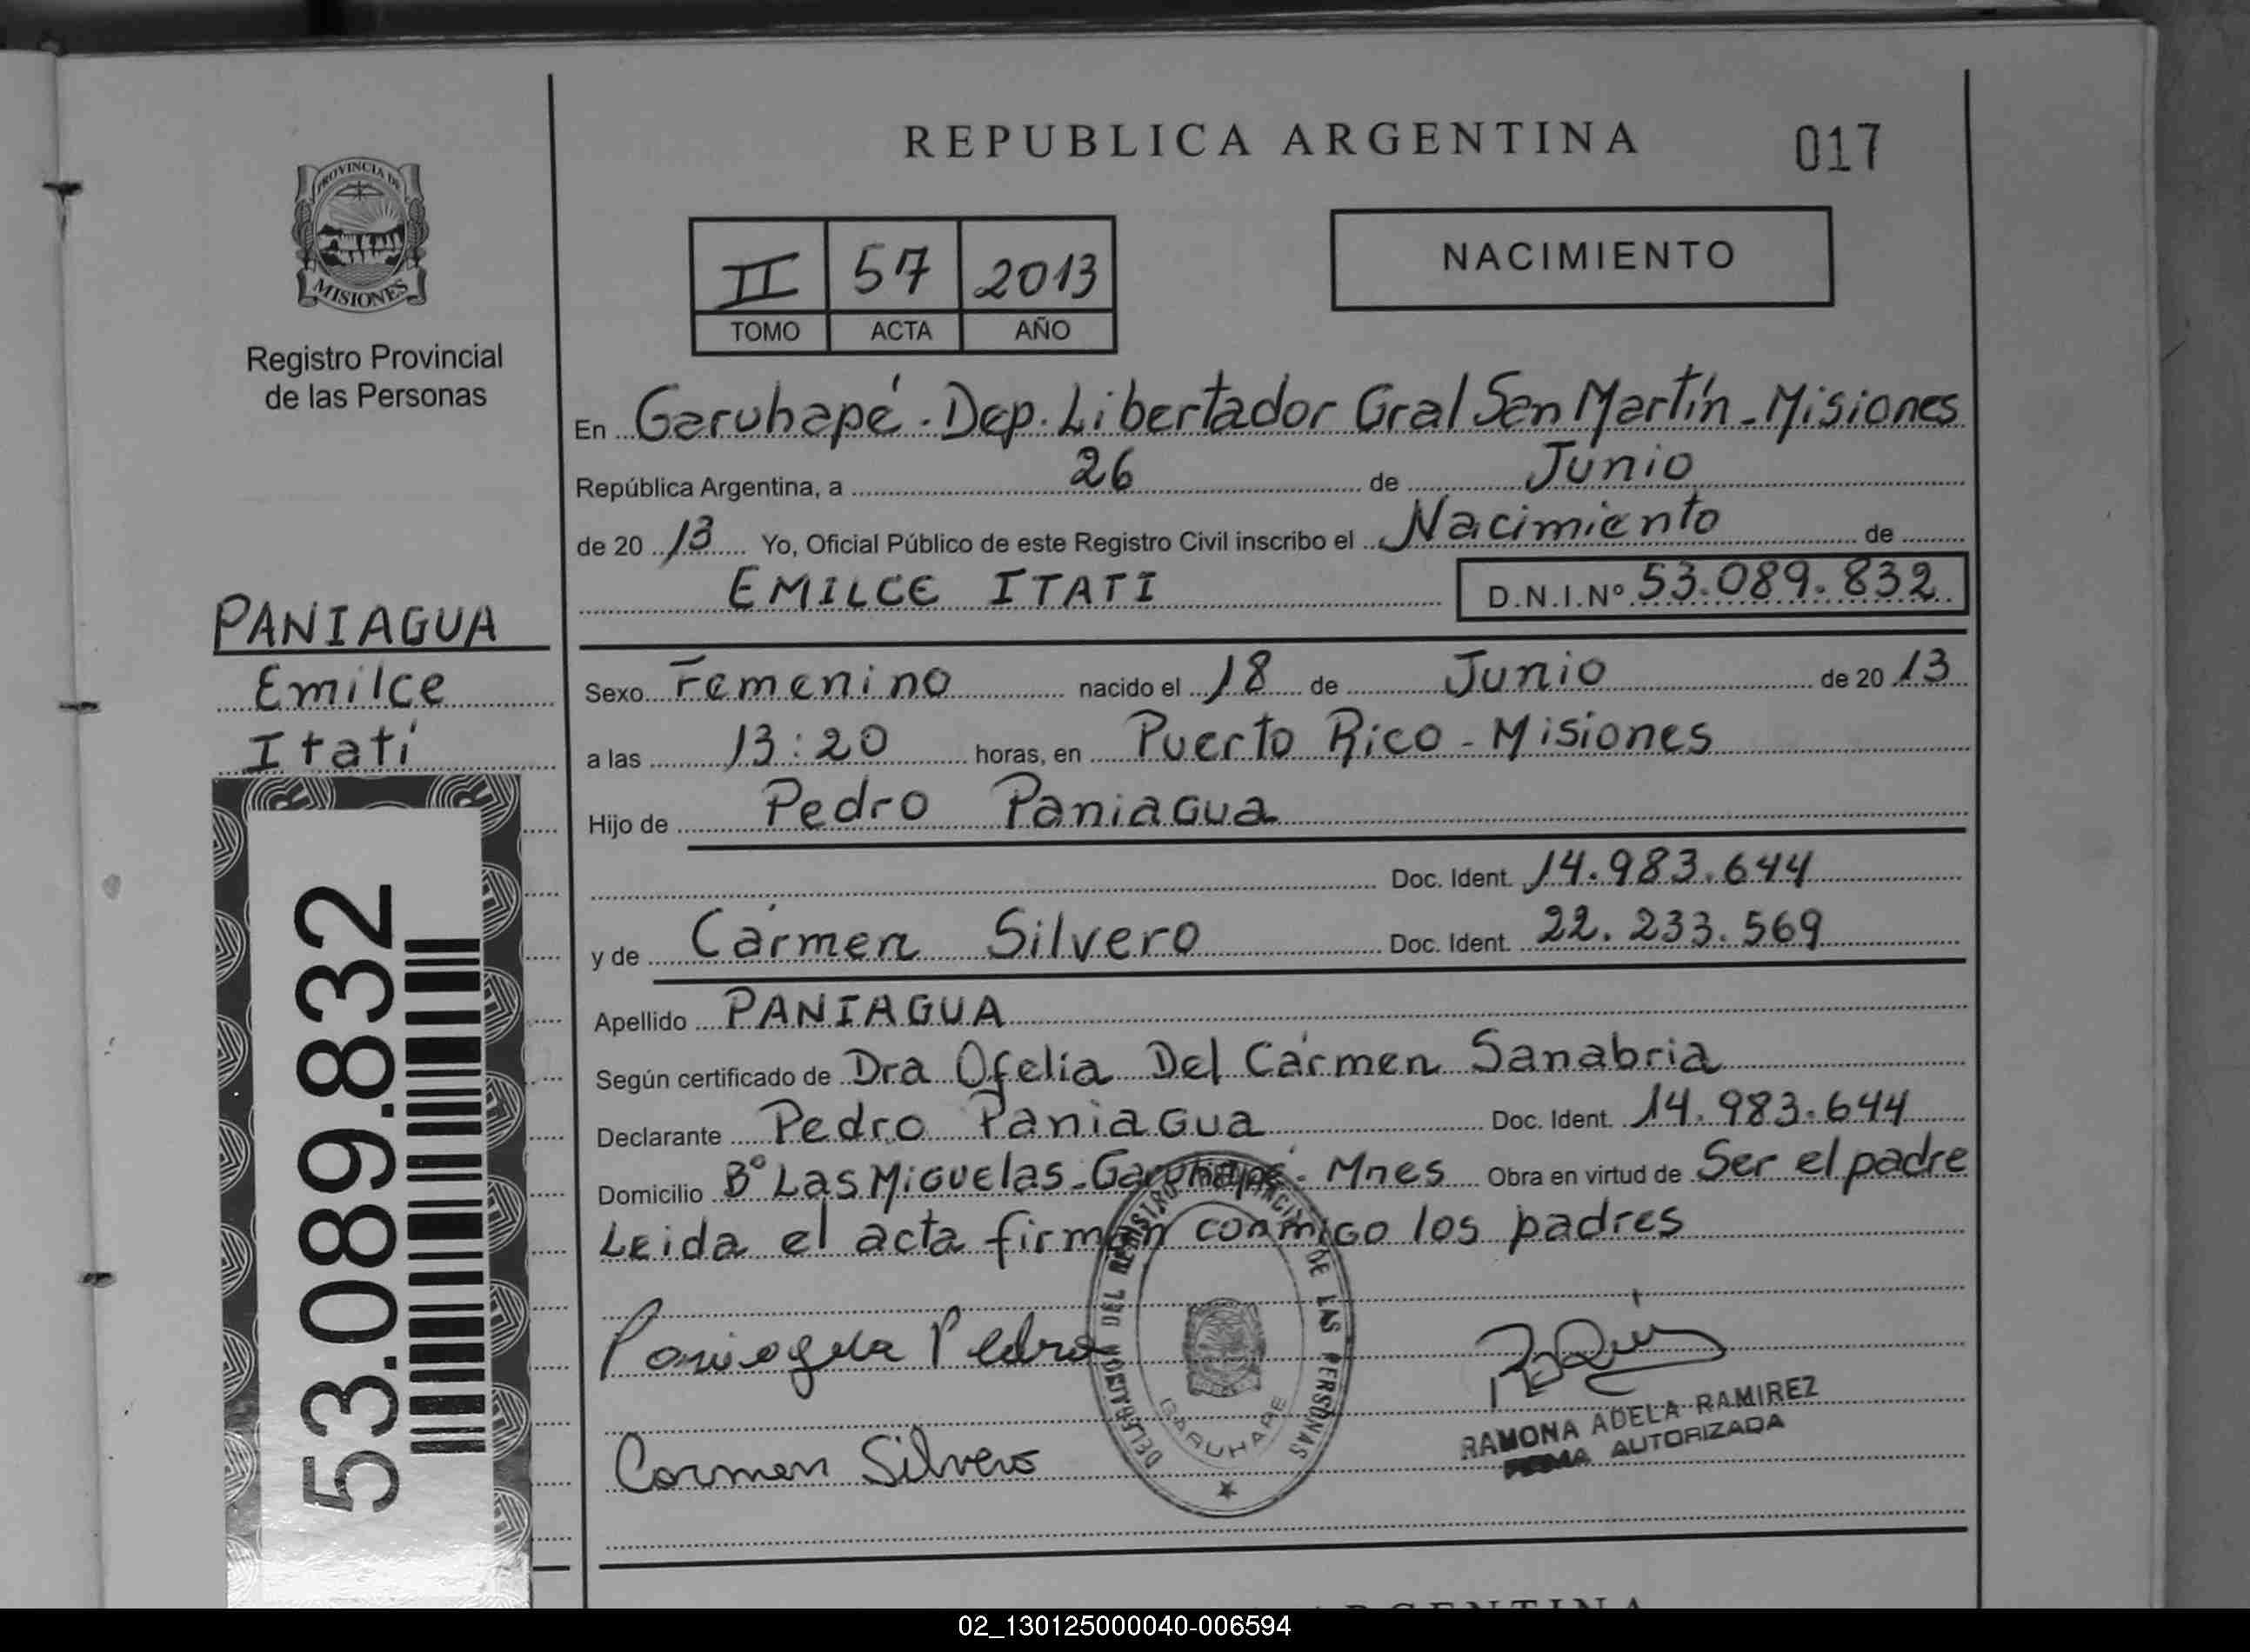 REPUBLICA ARGENTINA
017
PROVINCIA DE
MISIONES
Registro Provincial
de las Personas
II 57 2013
TOMO ACTA AÑO
NACIMIENTO
En Garuhapé - Dep. Libertador Gral San Martín - Misiones
República Argentina, a 26 de Junio
de 20 13 Yo, Oficial Público de este Registro Civil inscribo el Nacimiento de
EMILCE ITATI
D.N.I.Nº 53.089.832
PANIAGUA
Emilce
Itatí
53.089.832
Sexo Femenino nacido el 18 de Junio de 20 13
a las 13:20 horas, en Puerto Rico - Misiones
Hijo de Pedro Paniagua
Doc. Ident. 14.983.644
y de Carmen Silvero Doc. Ident. 22.233.569
Apellido PANIAGUA
Según certificado de Dra Ofelia Del Carmen Sanabria
Declarante Pedro Paniagua Doc. Ident. 14.983.644
Domicilio Bº Las Miguelas - Garuhapé - Mnes Obra en virtud de Ser el padre
Leida el acta firman conmigo los padres
Paniagua Pedro
Carmen Silvero
DEL REGISTRO DE LAS PERSONAS
GARUHAPE
RAMONA ADELA RAMIREZ
FIRMA AUTORIZADA
ARGENTINA
02_130125000040-006594